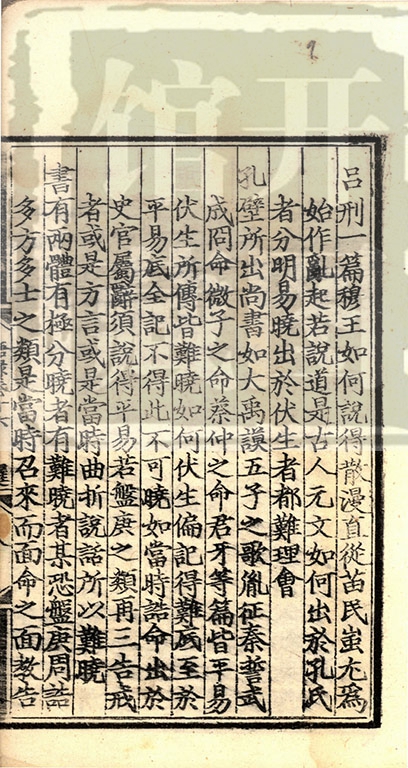 呂刑一篇穆王如何說得散漫直從苗民蚩尤爲
始作亂起若說道是古人元文如何出於孔氏
者分明易曉出於伏生者都難理會
孔壁所出尚書如大禹謨五子之歌胤征秦誓武
成問命微子之命蔡仲之命君牙等篇皆平易
伏生所傳皆難曉如何伏生偏記得難底至於
平易底全記不得此不可曉如當時誥命出於
史官屬辭須說得平易若盤庚之類再三告戒
者或是方言或是當時曲折說話所以難曉
書有兩體有極分曉者有難曉者某恐盤庚周誥
多方多士之類是當時召來而面命之面教告